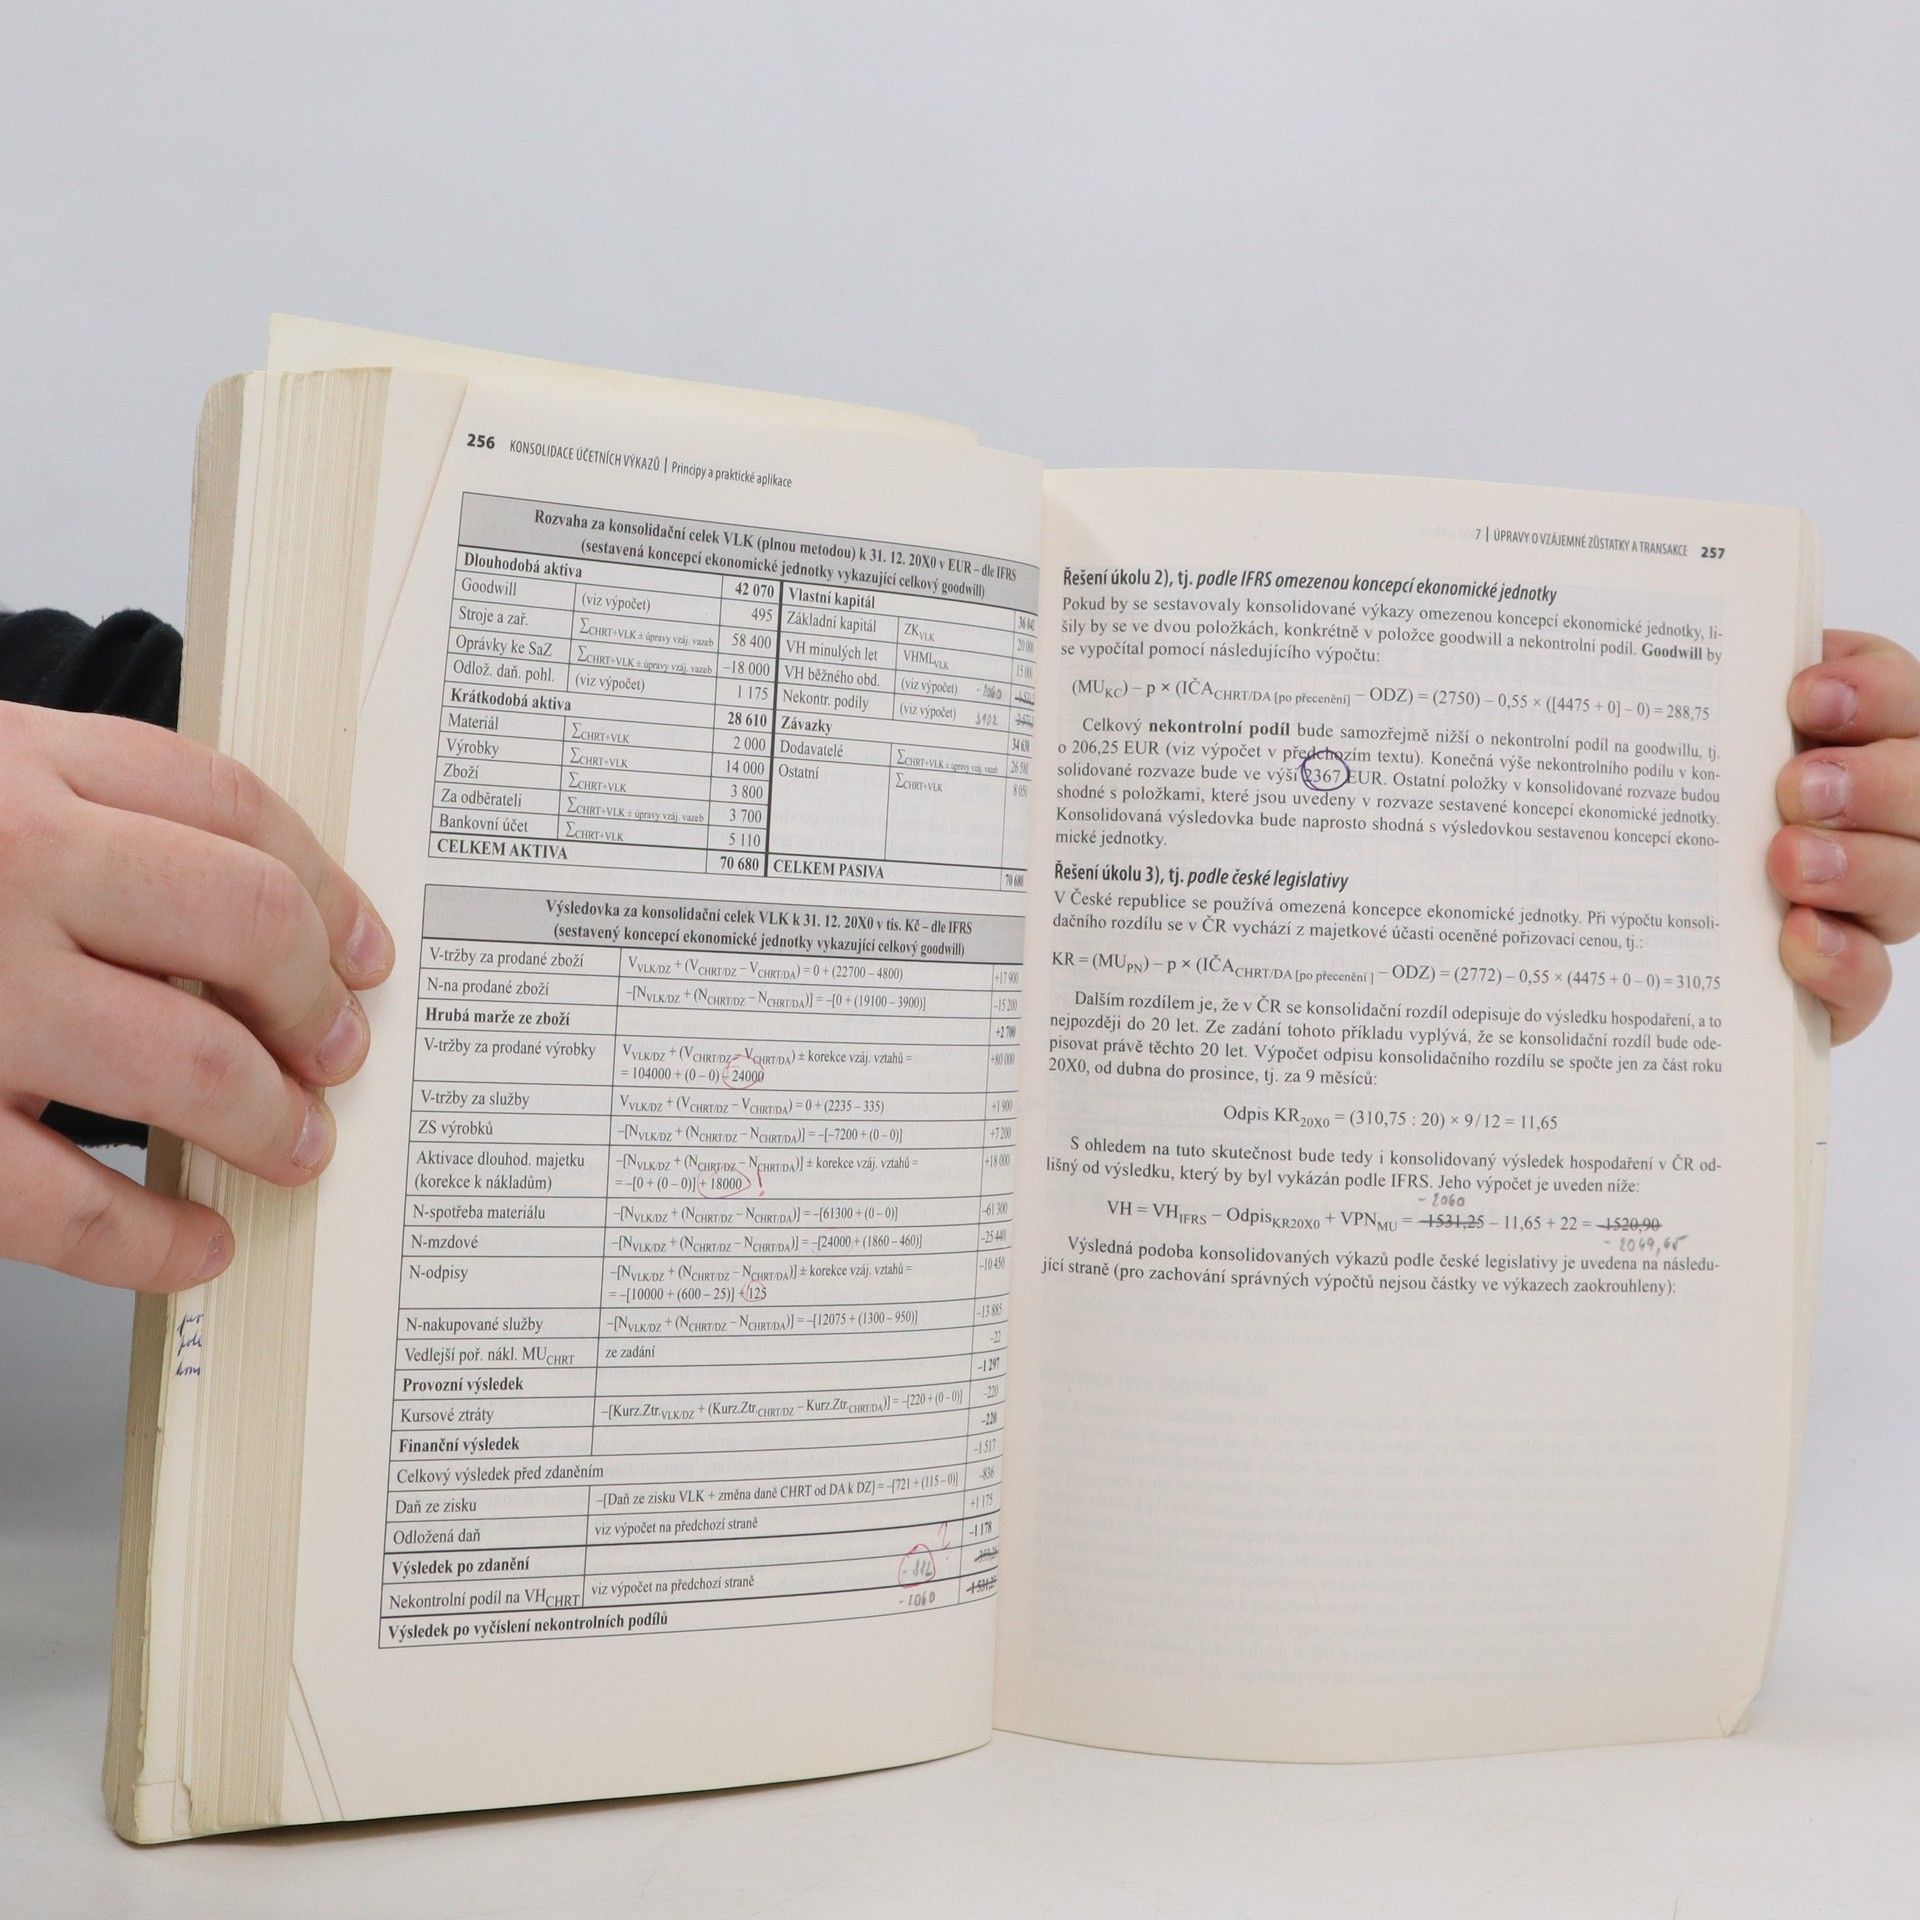 256 KONSOLIDACE ÚČETNÍCH VÝKAZŮ | Principy a praktické aplikace
Rozvaha za konsolidační celek VLK (plnou metodou) k 31. 12. 20X0 v EUR – dle IFRS
(sestavená koncepcí ekonomické jednotky vykazující celkový goodwill)
Dlouhodobá aktiva 42 070 Vlastní kapitál
Goodwill (viz výpočet) 495 Základní kapitál ZKVLK
Stroje a zař. ∑CHRT+VLK ± úpravy vzáj. vazeb 58 400 VH minulých let VHMLVLK
Oprávky ke SaZ ∑CHRT+VLK ± úpravy vzáj. vazeb –18 000 VH běžného obd. (viz výpočet) -2060
Odlož. daň. pohl. (viz výpočet) 1 175 Nekontr. podíly (viz výpočet) 3102
Krátkodobá aktiva 28 610 Závazky
Materiál ∑CHRT+VLK 2 000 Dodavatelé ∑CHRT+VLK ± úpravy vzáj. vazeb
Výrobky ∑CHRT+VLK 14 000 Ostatní ∑CHRT+VLK
Zboží ∑CHRT+VLK 3 800
Za odběrateli ∑CHRT+VLK ± úpravy vzáj. vazeb 3 700
Bankovní účet ∑CHRT+VLK 5 110
CELKEM AKTIVA 70 680 CELKEM PASIVA 70 680
Výsledovka za konsolidační celek VLK k 31. 12. 20X0 v tis. Kč – dle IFRS
(sestavený koncepcí ekonomické jednotky vykazující celkový goodwill)
V-tržby za prodané zboží VVLK/DZ + (VCHRT/DZ – VCHRT/DA) = 0 + (22700 – 4800) +17 900
N-na prodané zboží –[NVLK/DZ + (NCHRT/DZ – NCHRT/DA)] = –[0 + (19100 – 3900)] –15 200
Hrubá marže ze zboží +2 700
V-tržby za prodané výrobky VVLK/DZ + (VCHRT/DZ – VCHRT/DA) ± korekce vzáj. vztahů = +80 000
= 104000 + (0 – 0) – 24000
V-tržby za služby VVLK/DZ + (VCHRT/DZ – VCHRT/DA) = 0 + (2235 – 335) +1 900
ZS výrobků –[NVLK/DZ + (NCHRT/DZ – NCHRT/DA)] = –[–7200 + (0 – 0)] +7 200
Aktivace dlouhod. majetku –[NVLK/DZ + (NCHRT/DZ – NCHRT/DA)] ± korekce vzáj. vztahů = +18 000
(korekce k nákladům) = –[0 + (0 – 0)] + 18000 !
N-spotřeba materiálu –[NVLK/DZ + (NCHRT/DZ – NCHRT/DA)] = –[61300 + (0 – 0)] –61 300
N-mzdové –[NVLK/DZ + (NCHRT/DZ – NCHRT/DA)] = –[24000 + (1860 – 460)] –25 400
N-odpisy –[NVLK/DZ + (NCHRT/DZ – NCHRT/DA)] ± korekce vzáj. vztahů = –10 450
= –[10000 + (600 – 25)] + 125
N-nakupované služby –[NVLK/DZ + (NCHRT/DZ – NCHRT/DA)] = –[12075 + (1300 – 950)]
Vedlejší poř. nákl. MUCHRT ze zadání –22
Provozní výsledek –1 297
Kursové ztráty –[Kurz.Ztr.VLK/DZ + (Kurz.Ztr.CHRT/DZ – Kurz.Ztr.CHRT/DA)] = –[220 + (0 – 0)] –220
Finanční výsledek –220
Celkový výsledek před zdaněním –1 517
Daň ze zisku –[Daň ze zisku VLK + změna daně CHRT od DA k DZ] = –[721 + (115 – 0)] –836
Odložená daň viz výpočet na předchozí straně +1 175
Výsledek po zdanění –1 178
Nekontrolní podíl na VHCHRT viz výpočet na předchozí straně - 882
Výsledek po vyčíslení nekontrolních podílů - 2060
7 | ÚPRAVY O VZÁJEMNÉ ZŮSTATKY A TRANSAKCE 257
Řešení úkolu 2), tj. podle IFRS omezenou koncepcí ekonomické jednotky
Pokud by se sestavovaly konsolidované výkazy omezenou koncepcí ekonomické jednotky, li-
šily by se ve dvou položkách, konkrétně v položce goodwill a nekontrolní podíl. Goodwill by
se vypočítal pomocí následujícího výpočtu:
(MUKC) – p × (IČACHRT/DA [po přecenění] – ODZ) = (2750) – 0,55 × ([4475 + 0] – 0) = 288,75
Celkový nekontrolní podíl bude samozřejmě nižší o nekontrolní podíl na goodwillu, tj.
o 206,25 EUR (viz výpočet v předchozím textu). Konečná výše nekontrolního podílu v kon-
solidované rozvaze bude ve výši 2367 EUR. Ostatní položky v konsolidované rozvaze budou
shodné s položkami, které jsou uvedeny v rozvaze sestavené koncepcí ekonomické jednotky.
Konsolidovaná výsledovka bude naprosto shodná s výsledovkou sestavenou koncepcí ekono-
mické jednotky.
Řešení úkolu 3), tj. podle české legislativy
V České republice se používá omezená koncepce ekonomické jednotky. Při výpočtu konsoli-
dačního rozdílu se v ČR vychází z majetkové účasti oceněné pořizovací cenou, tj.:
KR = (MUPN) – p × (IČACHRT/DA [po přecenění ] – ODZ) = (2772) – 0,55 × (4475 + 0 – 0) = 310,75
Dalším rozdílem je, že v ČR se konsolidační rozdíl odepisuje do výsledku hospodaření, a to
nejpozději do 20 let. Ze zadání tohoto příkladu vyplývá, že se konsolidační rozdíl bude ode-
pisovat právě těchto 20 let. Výpočet odpisu konsolidačního rozdílu se spočte jen za část roku
20X0, od dubna do prosince, tj. za 9 měsíců:
Odpis KR20X0 = (310,75 : 20) × 9/12 = 11,65
S ohledem na tuto skutečnost bude tedy i konsolidovaný výsledek hospodaření v ČR od-
lišný od výsledku, který by byl vykázán podle IFRS. Jeho výpočet je uveden níže:
- 2060
VH = VHIFRS – OdpisKR20X0 + VPNMU = –1531,25 – 11,65 + 22 = –1520,90
- 2049,65
Výsledná podoba konsolidovaných výkazů podle české legislativy je uvedena na následu-
jící straně (pro zachování správných výpočtů nejsou částky ve výkazech zaokrouhleny):